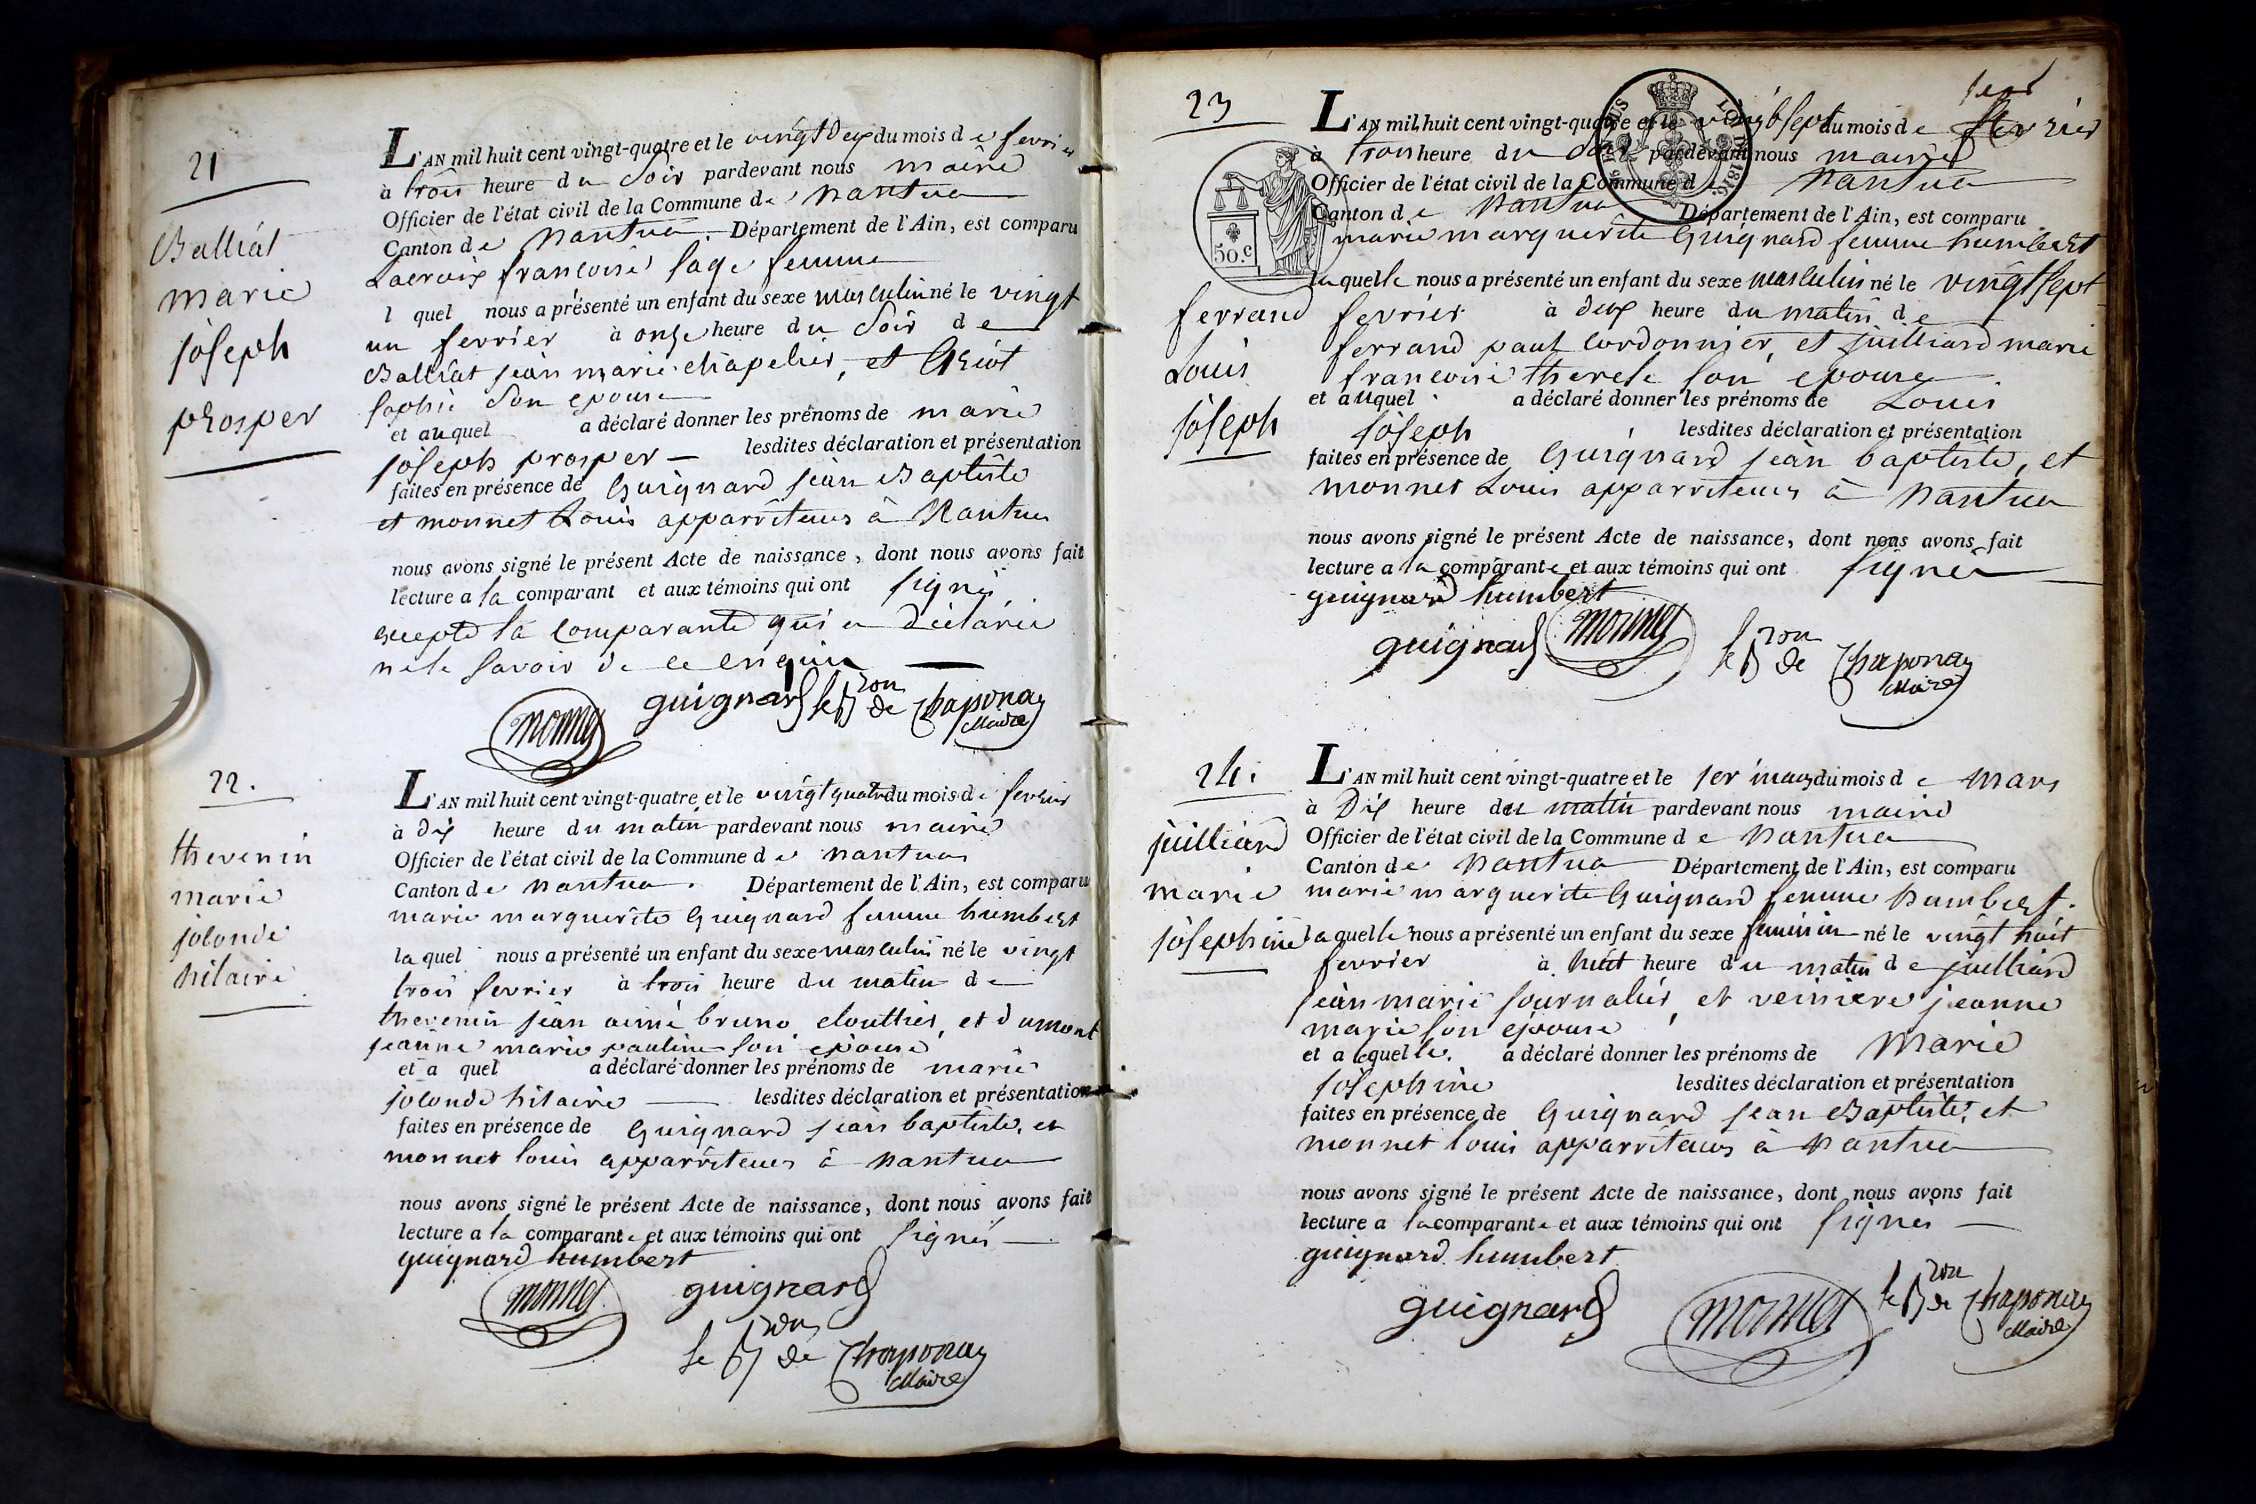 21
Balliat
marie
joseph
prosper
L'AN mil huit cent vingt-quatre et le vingt deux du mois de fevrier
à trois heure du Soir pardevant nous maire
Officier de l'état civil de la Commune de Nantua
Canton de Nantua. Département de l'Ain, est comparu
Lacroix francoise sage femme
l quel nous a présenté un enfant du sexe masculin né le vingt
un fevrier à onze heure du Soir de
Balliat jean marie chapelier, et
sophie Son epouse
et auquel a déclaré donner les prénoms de marie
joseph prosper — lesdites déclaration et présentation
faites en présence de Guignard jean Baptiste
et monnet Louis apparriteurs à Nantua
nous avons signé le présent Acte de naissance, dont nous avons fait
lecture a la comparant et aux témoins qui ont signés
excepté la Comparante qui a déclarée
ne le savoir de ce enquise
monnet guignard le Bron de Chaponay
Maire
22.
thevenin
marie
joconde
hilaire
L'AN mil huit cent vingt-quatre et le vingt quatre du mois de fevrier
à dix heure du matin pardevant nous maire
Officier de l'état civil de la Commune de Nantua
Canton de Nantua. Département de l'Ain, est comparu
marie marguerite Guignard femme humbert
la quel nous a présenté un enfant du sexe masculin né le vingt
trois fevrier à trois heure du matin de
thevenin jean aimé bruno clouttier, et dumont
jeanne marie pauline son epouse
et a quel a déclaré donner les prénoms de marie
joconde hilaire — lesdites déclaration et présentation
faites en présence de Guignard jean baptiste, et
monnet louis apparriteurs à Nantua
nous avons signé le présent Acte de naissance, dont nous avons fait
lecture a la comparante et aux témoins qui ont signés —
guignard humbert
monnet guignard
le Bron de Chaponay
Maire
23
ferrand
Louis
joseph
50.c
L'AN mil huit cent vingt-quatre et le vingt sept du mois de fevrier
à trois heure du Soir pardevant nous maire
Officier de l'état civil de la Commune de Nantua
Canton de Nantua Département de l'Ain, est comparu
marie marguerite Guignard femme humbert
laquelle nous a présenté un enfant du sexe masculin né le vingt sept
fevrier à deux heure du matin de
ferrand paul Cordonnier, et juilliard marie
francoise therese son epouse
et auquel a déclaré donner les prénoms de Louis
joseph lesdites déclaration et présentation
faites en présence de Guignard jean baptiste, et
monnet Louis apparriteurs à Nantua
nous avons signé le présent Acte de naissance, dont nous avons fait
lecture a la comparante et aux témoins qui ont signés
guignard humbert
guignard monnet le Bron de Chaponay
Maire
24.
juilliard
marie
josephine
L'AN mil huit cent vingt-quatre et le 1er mars du mois de mars
à Dix heure du matin pardevant nous maire
Officier de l'état civil de la Commune de Nantua
Canton de Nantua Département de l'Ain, est comparu
marie marguerite Guignard femme humbert.
laquelle nous a présenté un enfant du sexe feminin né le vingt huit
fevrier à huit heure du matin de juilliard
jean marie journalier, et jeanne
marie son epouse
et a cquelle. a déclaré donner les prénoms de Marie
josephine lesdites déclaration et présentation
faites en présence de Guignard jean Baptiste, et
monnet louis apparriteurs à Nantua
nous avons signé le présent Acte de naissance, dont nous avons fait
lecture a la comparante et aux témoins qui ont signés —
guignard humbert
guignard monnet le Bron de Chaponay
Maire